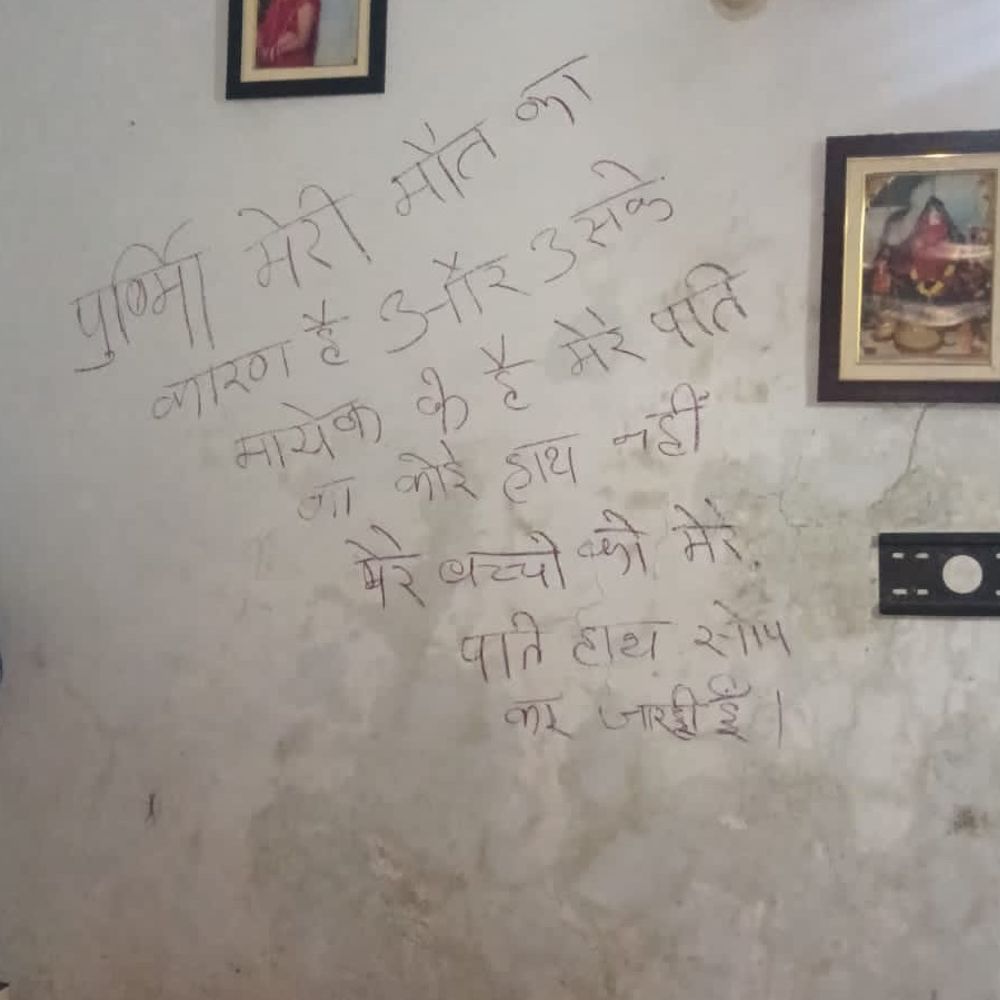 पुर्णिमा मेरी मौत का
कारण है और उसके
मायेक के है मेरे पति
का कोई हाथ नहीं
मेरे बच्चो को मेरे
पति हाथ सोप
कर जा रही हूँ।